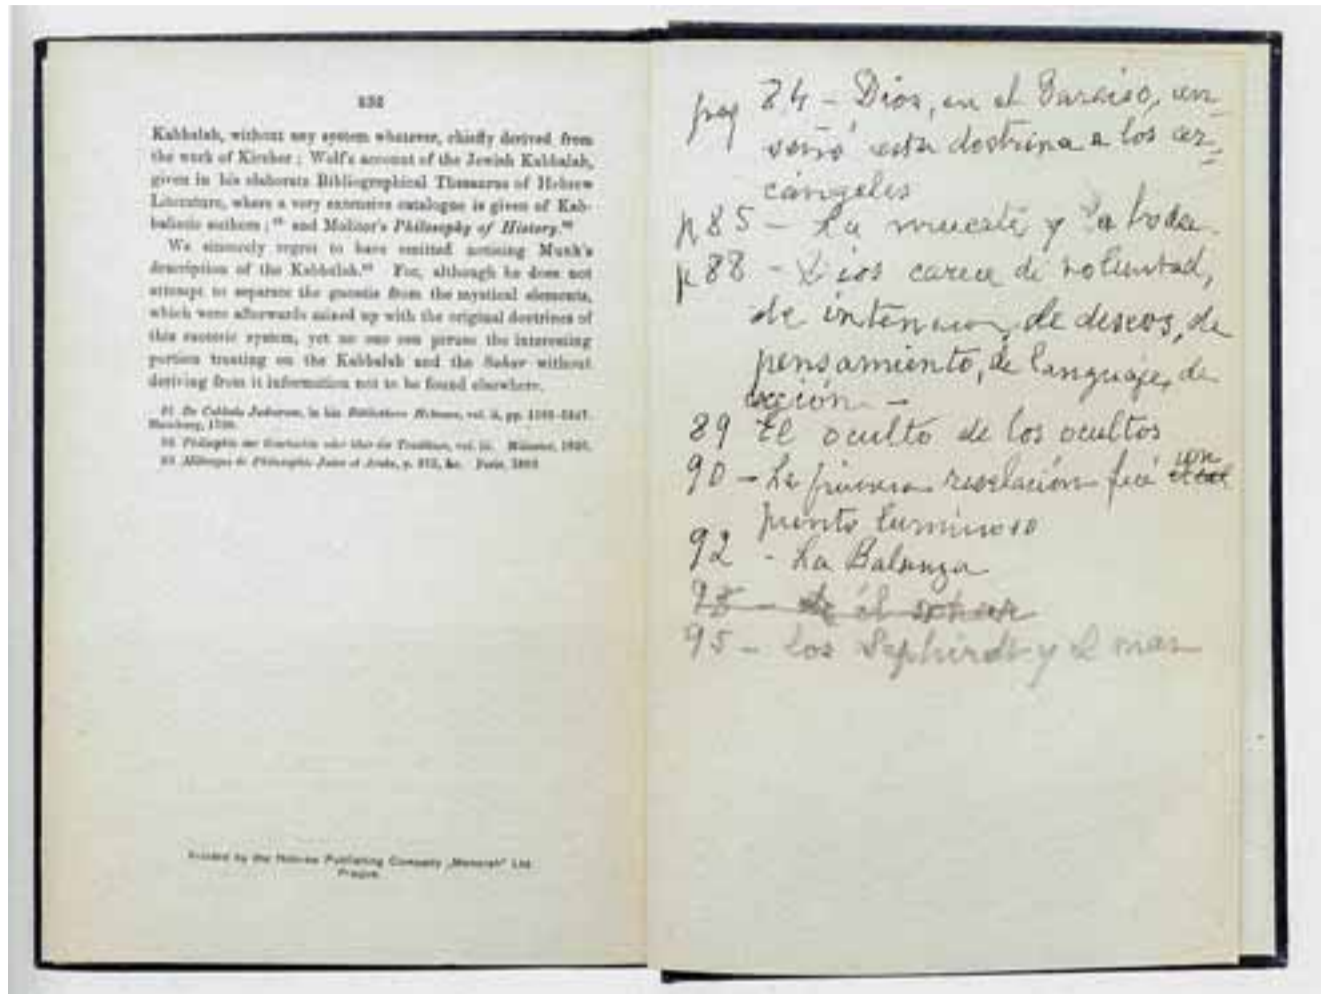 232
Kabbalah, without any system whatever, chiefly derived from
the work of Kircher ; Wolf's account of the Jewish Kabbalah,
given in his elaborate Bibliographical Thesaurus of Hebrew
Literature, where a very extensive catalogue is given of Kab-
balistic authors ; and Molitor's Philosophy of History.
We sincerely regret to have omitted noticing Munk's
description of the Kabbalah. For, although he does not
attempt to separate the gnostic from the mystical elements,
which were afterwards mixed up with the original doctrines of
this esoteric system, yet no one can peruse the interesting
portion treating on the Kabbalah and the Sohar without
deriving from it information not to be found elsewhere.
De Cabbala Judaeorum, in his Bibliotheca Hebraea, vol. ii, pp.
Hamburg,
Philosophie der Geschichte oder über die Tradition, vol. iii. Münster,
Mélanges de Philosophie Juive et Arabe, p. &c. Paris,
Printed by the Hebrew Publishing Company „Menorah" Ltd.
Prague.
pag 84 - Dios, en el Paraiso, en-
señó esta doctrina a los ar-
cángeles
p 85 - La muerte y la boda
p 88 - Dios carece de voluntad,
de intencion, de deseos, de
pensamiento, de language, de
acción -
89 El oculto de los ocultos
90 - La primera revelación fué un
punto luminoso
92 - La Balanza
95 - Los Sephirot y el mar